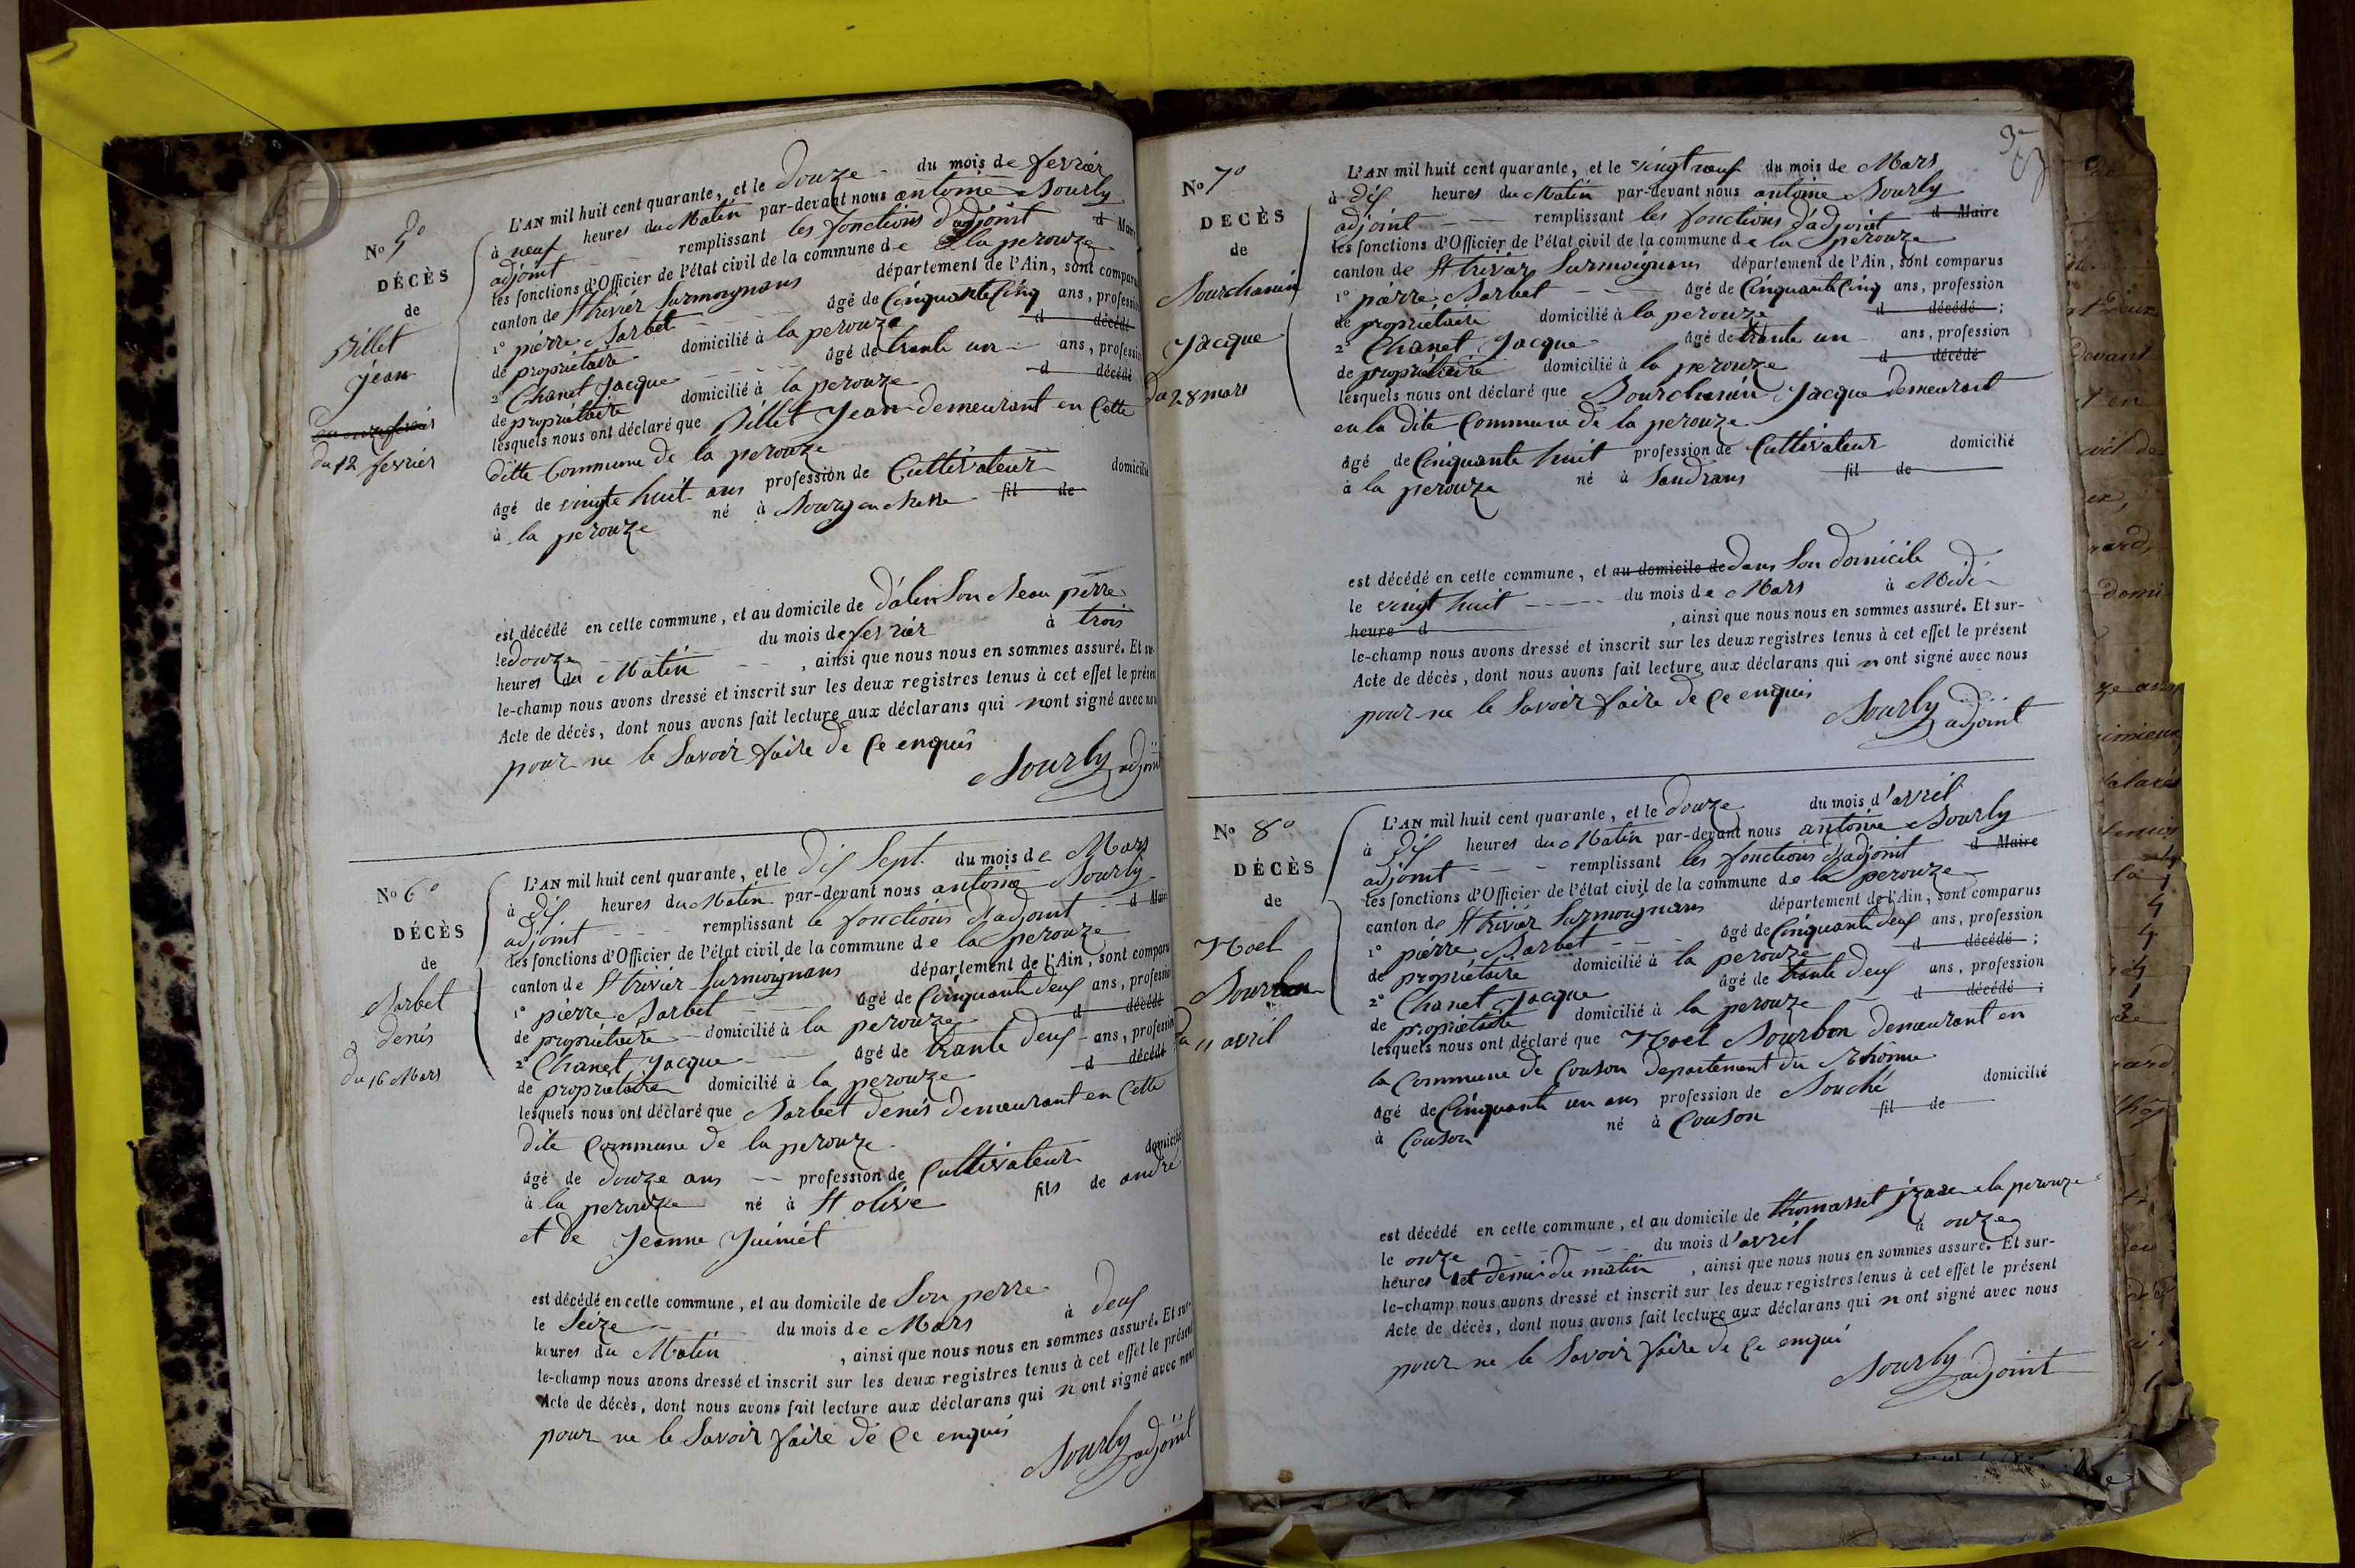 No 5°
DÉCÈS
de
Billet
jean
du onze fevrier
du 12 fevrier
L'AN mil huit cent quarante, et le douze du mois de fevrier
à neuf heures du Matin par-devant nous antoine Bourly
adjoint remplissant les fonctions d'adjoint d Maire
les fonctions d'Officier de l'état civil de la commune de la perouze
canton de St trivier surmoignans département de l'Ain, sont comparus
1° pierre Barbet âgé de Cinquante Cinq ans, profession
de propriétaire domicilié à la perouze d décédé
2° Chanet Jacque âgé de trante un ans, profession
de propriétaire domicilié à la perouze d décédé
lesquels nous ont déclaré que Billet Jean demeurant en Cette
ditte Commune de la perouze
âgé de vingte huit ans profession de Cultivateur domicilié
à la perouze né à Bourg en Bresse fil de
est décédé en cette commune, et au domicile de Son Beau perre
le douze du mois de fevrier à trois
heures du Matin, ainsi que nous nous en sommes assuré. Et sur-
le-champ nous avons dressé et inscrit sur les deux registres tenus à cet effet le présent
Acte de décès, dont nous avons fait lecture aux déclarans qui nont signé avec nous
pour ne le Savoir faire de Ce enquis
Bourly adjoint
No 6°
DÉCÈS
de
Barbet
denis
du 16 Mars
L'AN mil huit cent quarante, et le dis Sept du mois de Mars
à dis heures du Matin par-devant nous antoine Bourly
adjoint remplissant le fonctions d'adjoint d Maire
les fonctions d'Officier de l'état civil de la commune de la perouze
canton de St trivier surmoignans département de l'Ain, sont comparus
1° pierre Barbet âgé de Cinquante deux ans, profession
de propriétaire domicilié à la perouze d décédé
2° Chanet Jacque âgé de trante deux ans, profession
de propriétaire domicilié à la perouze d décédé
lesquels nous ont déclaré que Barbet denis demeurant en Cette
dite Commune de la perouze
âgé de douze ans profession de Cultivateur domicilié
à la perouze né à St olive fils de andré
et de Jeanne
est décédé en cette commune, et au domicile de Son perre
le Seize du mois de Mars à deux
heures du Matin, ainsi que nous nous en sommes assuré. Et sur-
le-champ nous avons dressé et inscrit sur les deux registres tenus à cet effet le présent
Acte de décès, dont nous avons fait lecture aux déclarans qui n ont signé avec nous
pour ne le Savoir faire de Ce enquis
Bourly adjoint
No 7°
DECÈS
de
Bourchanin
Jacque
du 28 mars
L'AN mil huit cent quarante, et le vingt neuf du mois de Mars
à dis heures du Matin par-devant nous antoine Bourly
adjoint remplissant les fonctions d'adjoint d Maire
les fonctions d'Officier de l'état civil de la commune de la perouze
canton de St trivier Surmoignans département de l'Ain, sont comparus
1° pierre Barbet âgé de Cinquante Cinq ans, profession
de propriétaire domicilié à la perouze d décédé;
2° Chanet Jacque âgé de trante un ans, profession
de propriétaire domicilié à la perouze d décédé
lesquels nous ont déclaré que Bourchanin Jacque demeurant
en la dite Commune de la perouze
âgé de Cinquante huit profession de Cultivateur domicilié
à la perouze né à Sandrans fil de
est décédé en cette commune, et au domicile de dans Son domicile
le vingt huit du mois de Mars à Midi
heure d, ainsi que nous nous en sommes assuré. Et sur-
le-champ nous avons dressé et inscrit sur les deux registres tenus à cet effet le présent
Acte de décès, dont nous avons fait lecture aux déclarans qui n ont signé avec nous
pour ne le Savoir faire de Ce enquis
Bourly adjoint
No 8°
DÉCÈS
de
Noel
Bourbon
du 11 avril
L'AN mil huit cent quarante, et le douze du mois d'avril
à dis heures du Matin par-devant nous antoine Bourly
adjoint remplissant les fonctions d'adjoint d Maire
les fonctions d'Officier de l'état civil de la commune de la perouze
canton de St trivier Surmoignans département de l'Ain, sont comparus
1° pierre Barbet âgé de Cinquante deux ans, profession
de propriétaire domicilié à la perouze d décédé;
2° Chanet Jacque âgé de trante deux ans, profession
de propriétaire domicilié à la perouze d décédé;
lesquels nous ont déclaré que Noel Bourbon demeurant en
la Commune de Couson departement du Rhônne
âgé de Cinquante un ans profession de Bouché domicilié
à Couson né à Couson fil de
est décédé en cette commune, et au domicile de thomasset a la perouze
le onze du mois d'avril à onze
heures et demi du matin, ainsi que nous nous en sommes assuré. Et sur-
le-champ nous avons dressé et inscrit sur les deux registres tenus à cet effet le présent
Acte de décès, dont nous avons fait lecture aux déclarans qui n ont signé avec nous
pour ne le Savoir faire de Ce enqui
Bourly adjoint